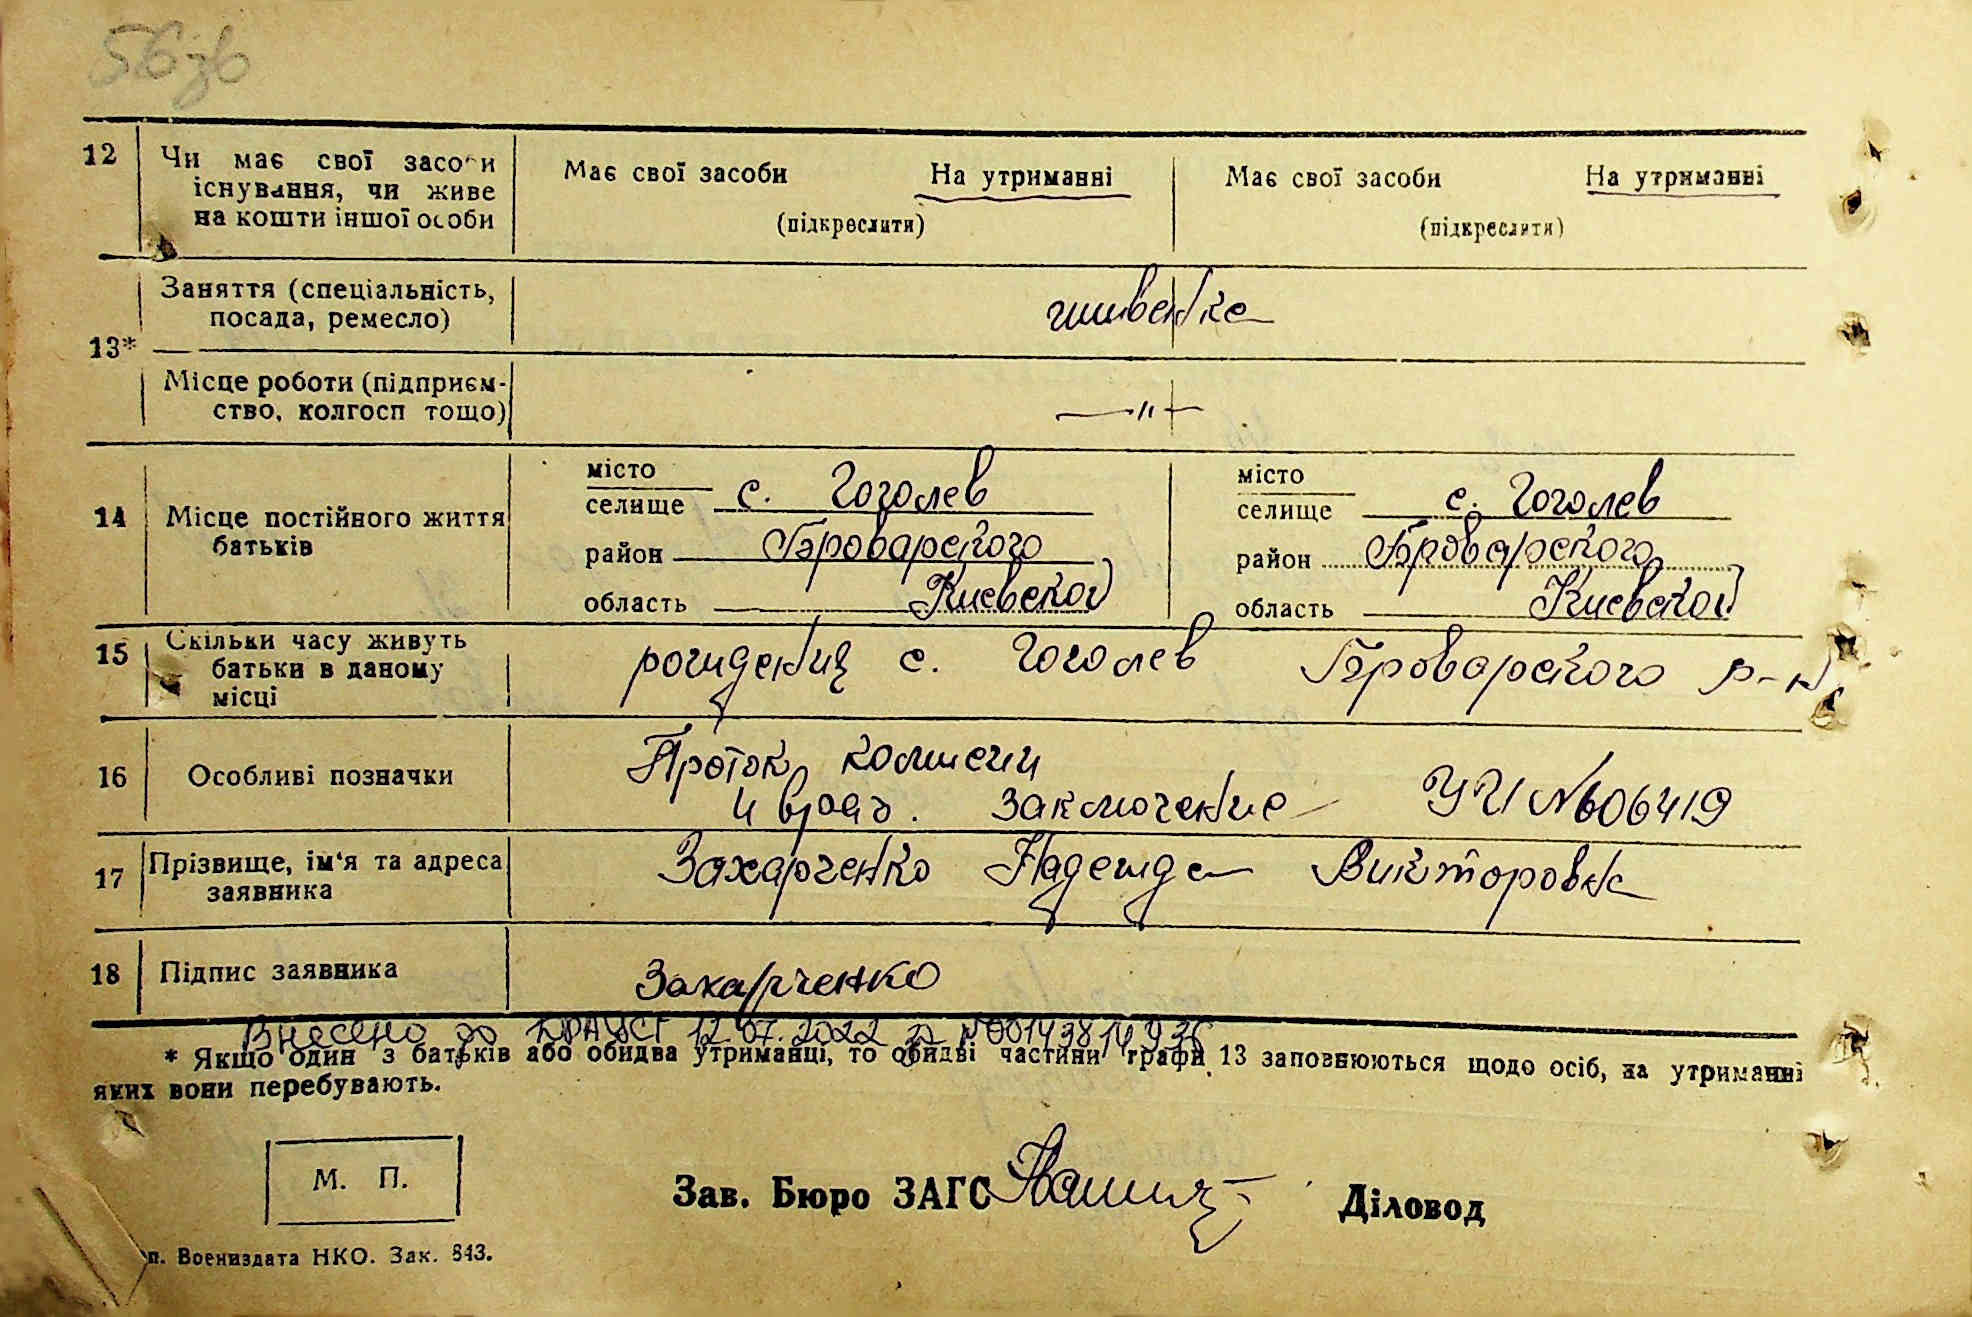 56 зв
12 Чи має свої засоби Має свої засоби На утриманні Має свої засоби На утриманні
існування, чи живе
на кошти іншої особи (підкреслити) (підкреслити)
Заняття (спеціальність,
посада, ремесло)
13*
Місце роботи (підприєм-
ство, колгосп тощо) —"—
місто місто
селище с. Гоголев селище с. Гоголев
14 Місце постійного життя
батьків
район Броварского район Броварского
область Киевской область Киевской
15 Скільки часу живуть
батьки в даному
місці
с. Гоголев Броварского р-н
16 Особливі позначки Проток комисии
и врач. заключение УЧ №606419
17 Прізвище, ім'я та адреса
заявника
Захарченко Надежда Викторовна
18 Підпис заявника Захарченко
Внесено до ДРАЦСГ 12.07.2022 за №00143814936
* Якщо один з батьків або обидва утриманці, то обидві частини графи 13 заповнюються щодо осіб, на утриманні
яких вони перебувають.
М. П.
Зав. Бюро ЗАГС Діловод
п. Воениздата НКО. Зак. 843.